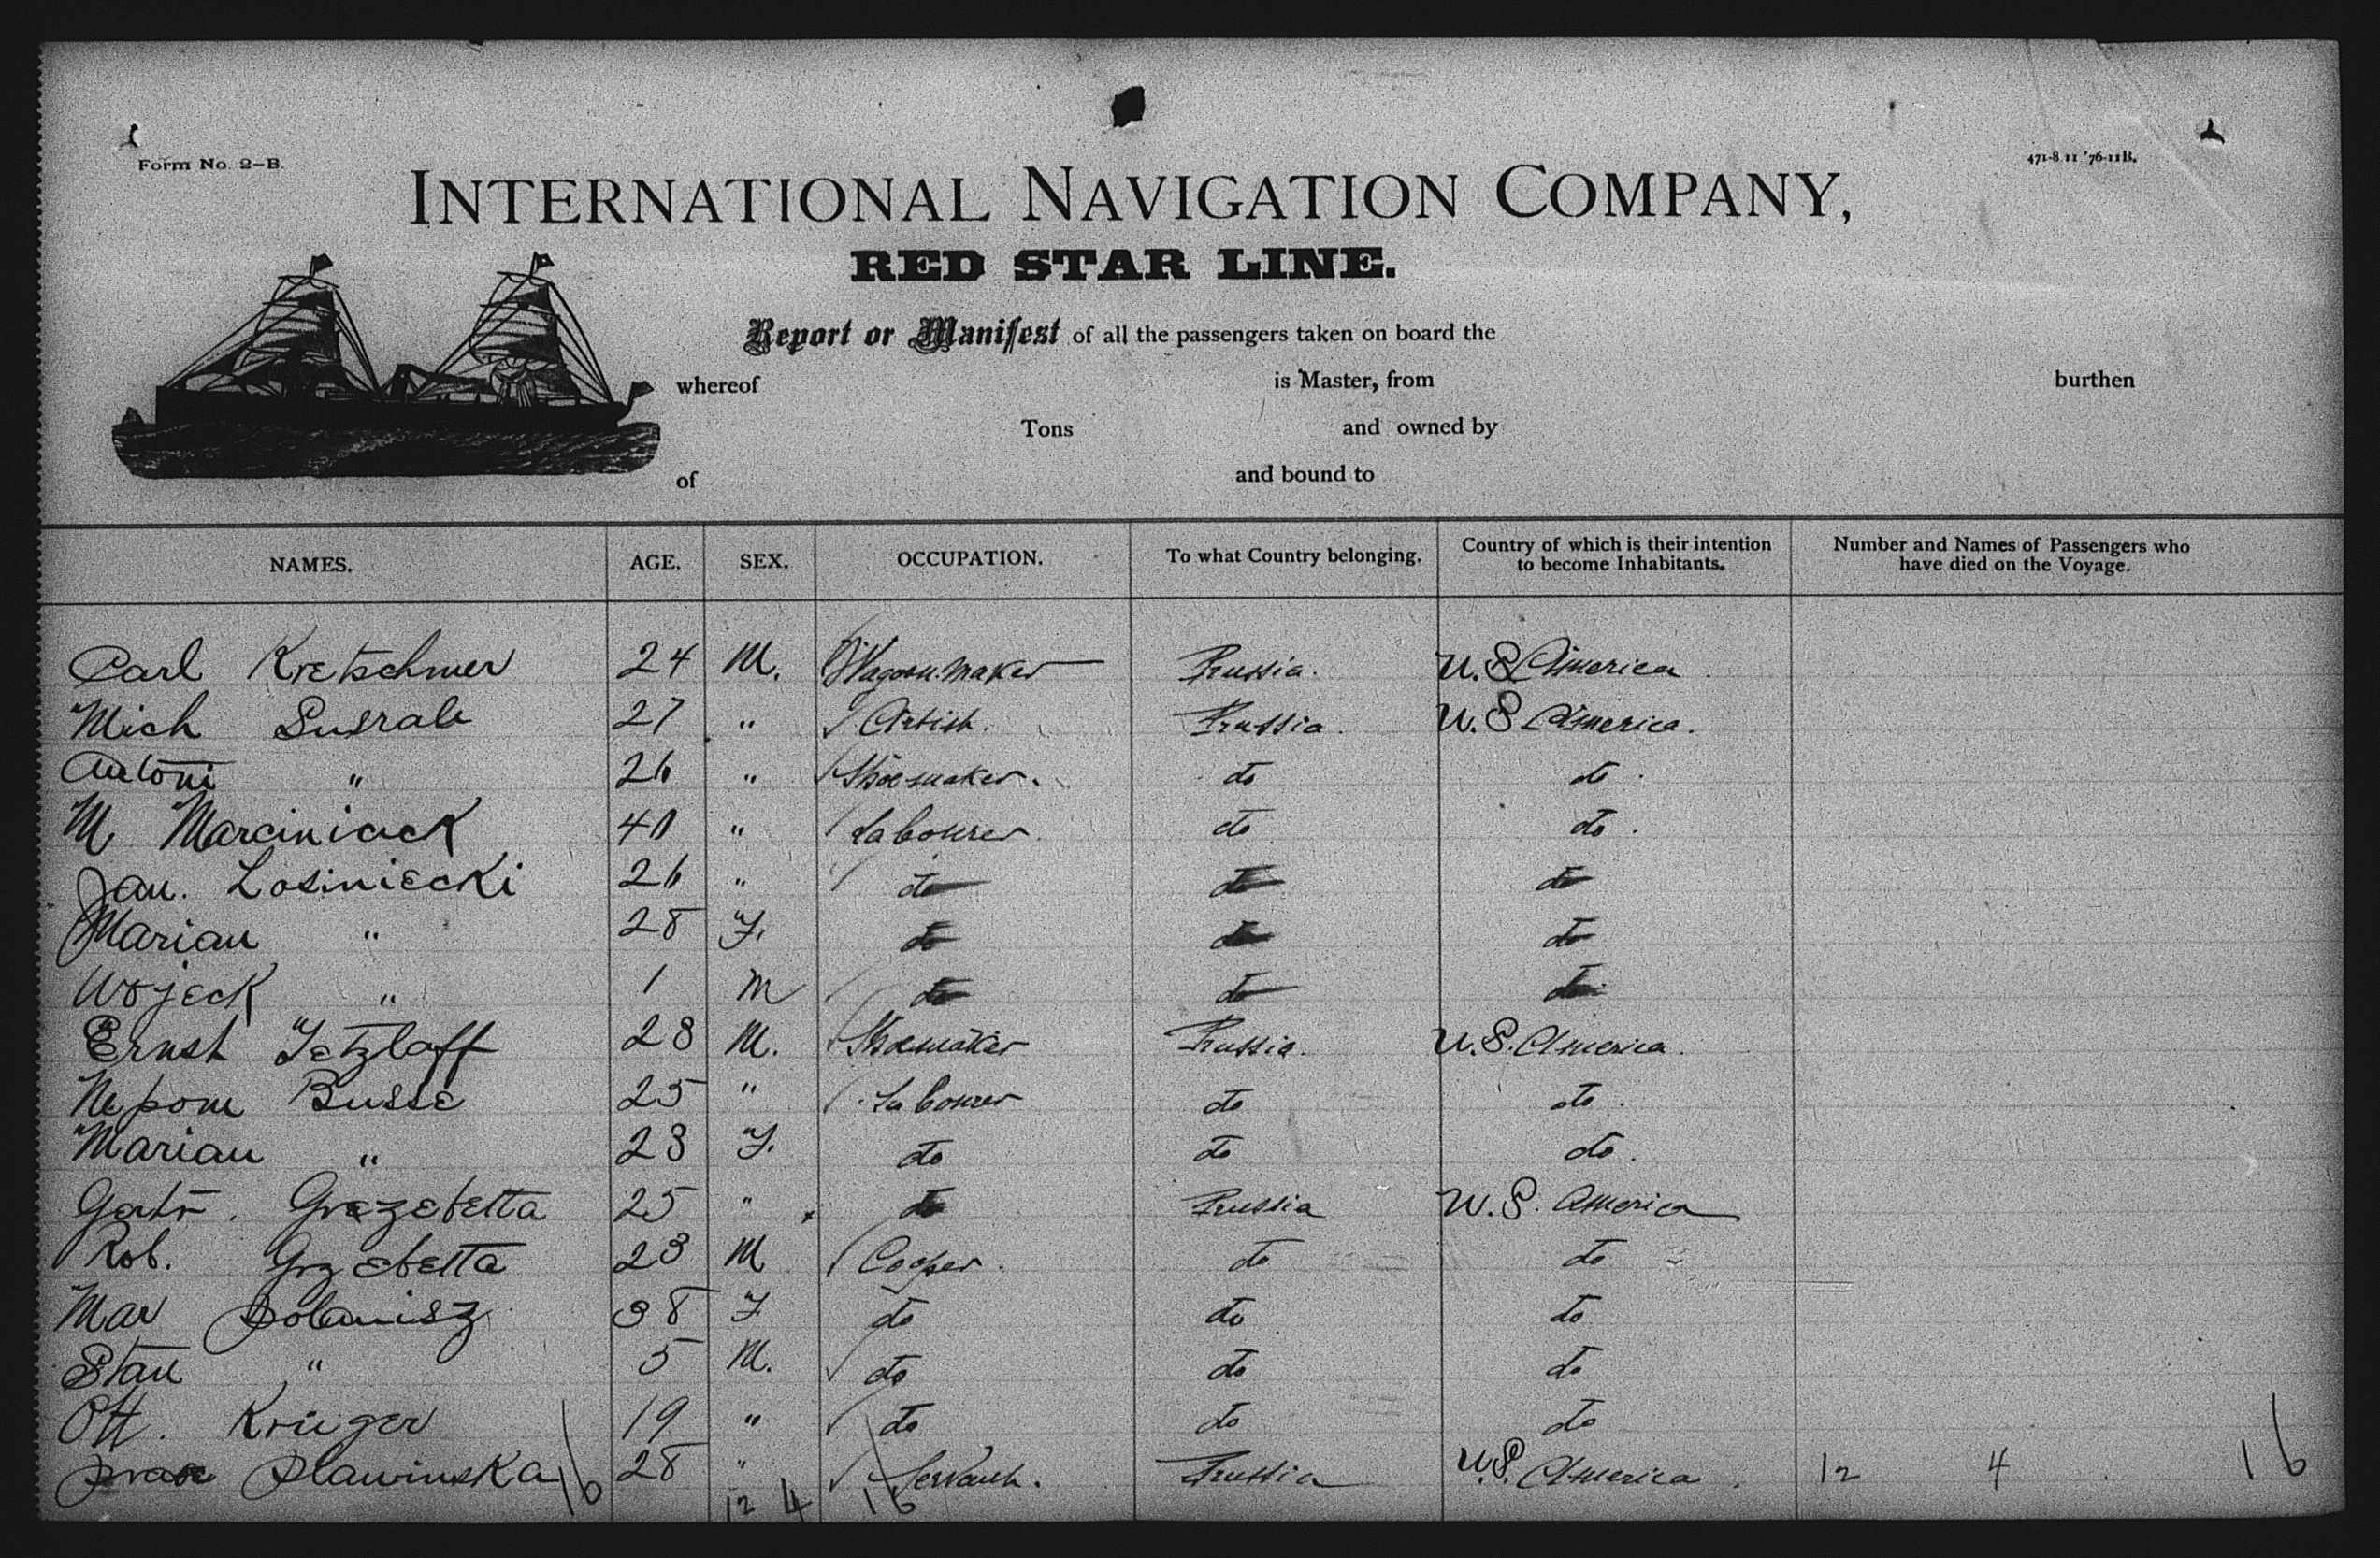 Form No. 2-B.
471-8 11 '76-11B.
INTERNATIONAL NAVIGATION COMPANY,
RED STAR LINE.
Report or Manifest of all the passengers taken on board the
whereof is Master, from burthen
Tons and owned by
of and bound to
NAMES. AGE. SEX. OCCUPATION. To what Country belonging. Country of which is their intention to become Inhabitants. Number and Names of Passengers who have died on the Voyage.
Carl Kretschmer 24 M. Wagon maker Prussia. U. S America
Mich 27 " Artist. Prussia. U. S America.
Antoni " 26 " Shoemaker. do do.
M Marciniack 40 " Labourer do do.
Jan. Losiniecki 26 " do do do
Marian " 28 F. do do do
Wojeck " 1 M do do do
Ernst Tetzlaff 28 M. Shoemaker Prussia. U. S. America.
Nepom Busse 25 " Labourer do do.
Marian " 23 F. do do do.
Gertr. Grezebetta 25 " do Prussia U. S. America
Rob. Grzebetta 23 M Cooper. do do
Mar 38 F do do do
Stan " 5 M. do do do
Ott. Krüger 19 " do do do
Slawinska 28 " Servant. Prussia U. S. America. 12 4 16
16 12 4 16